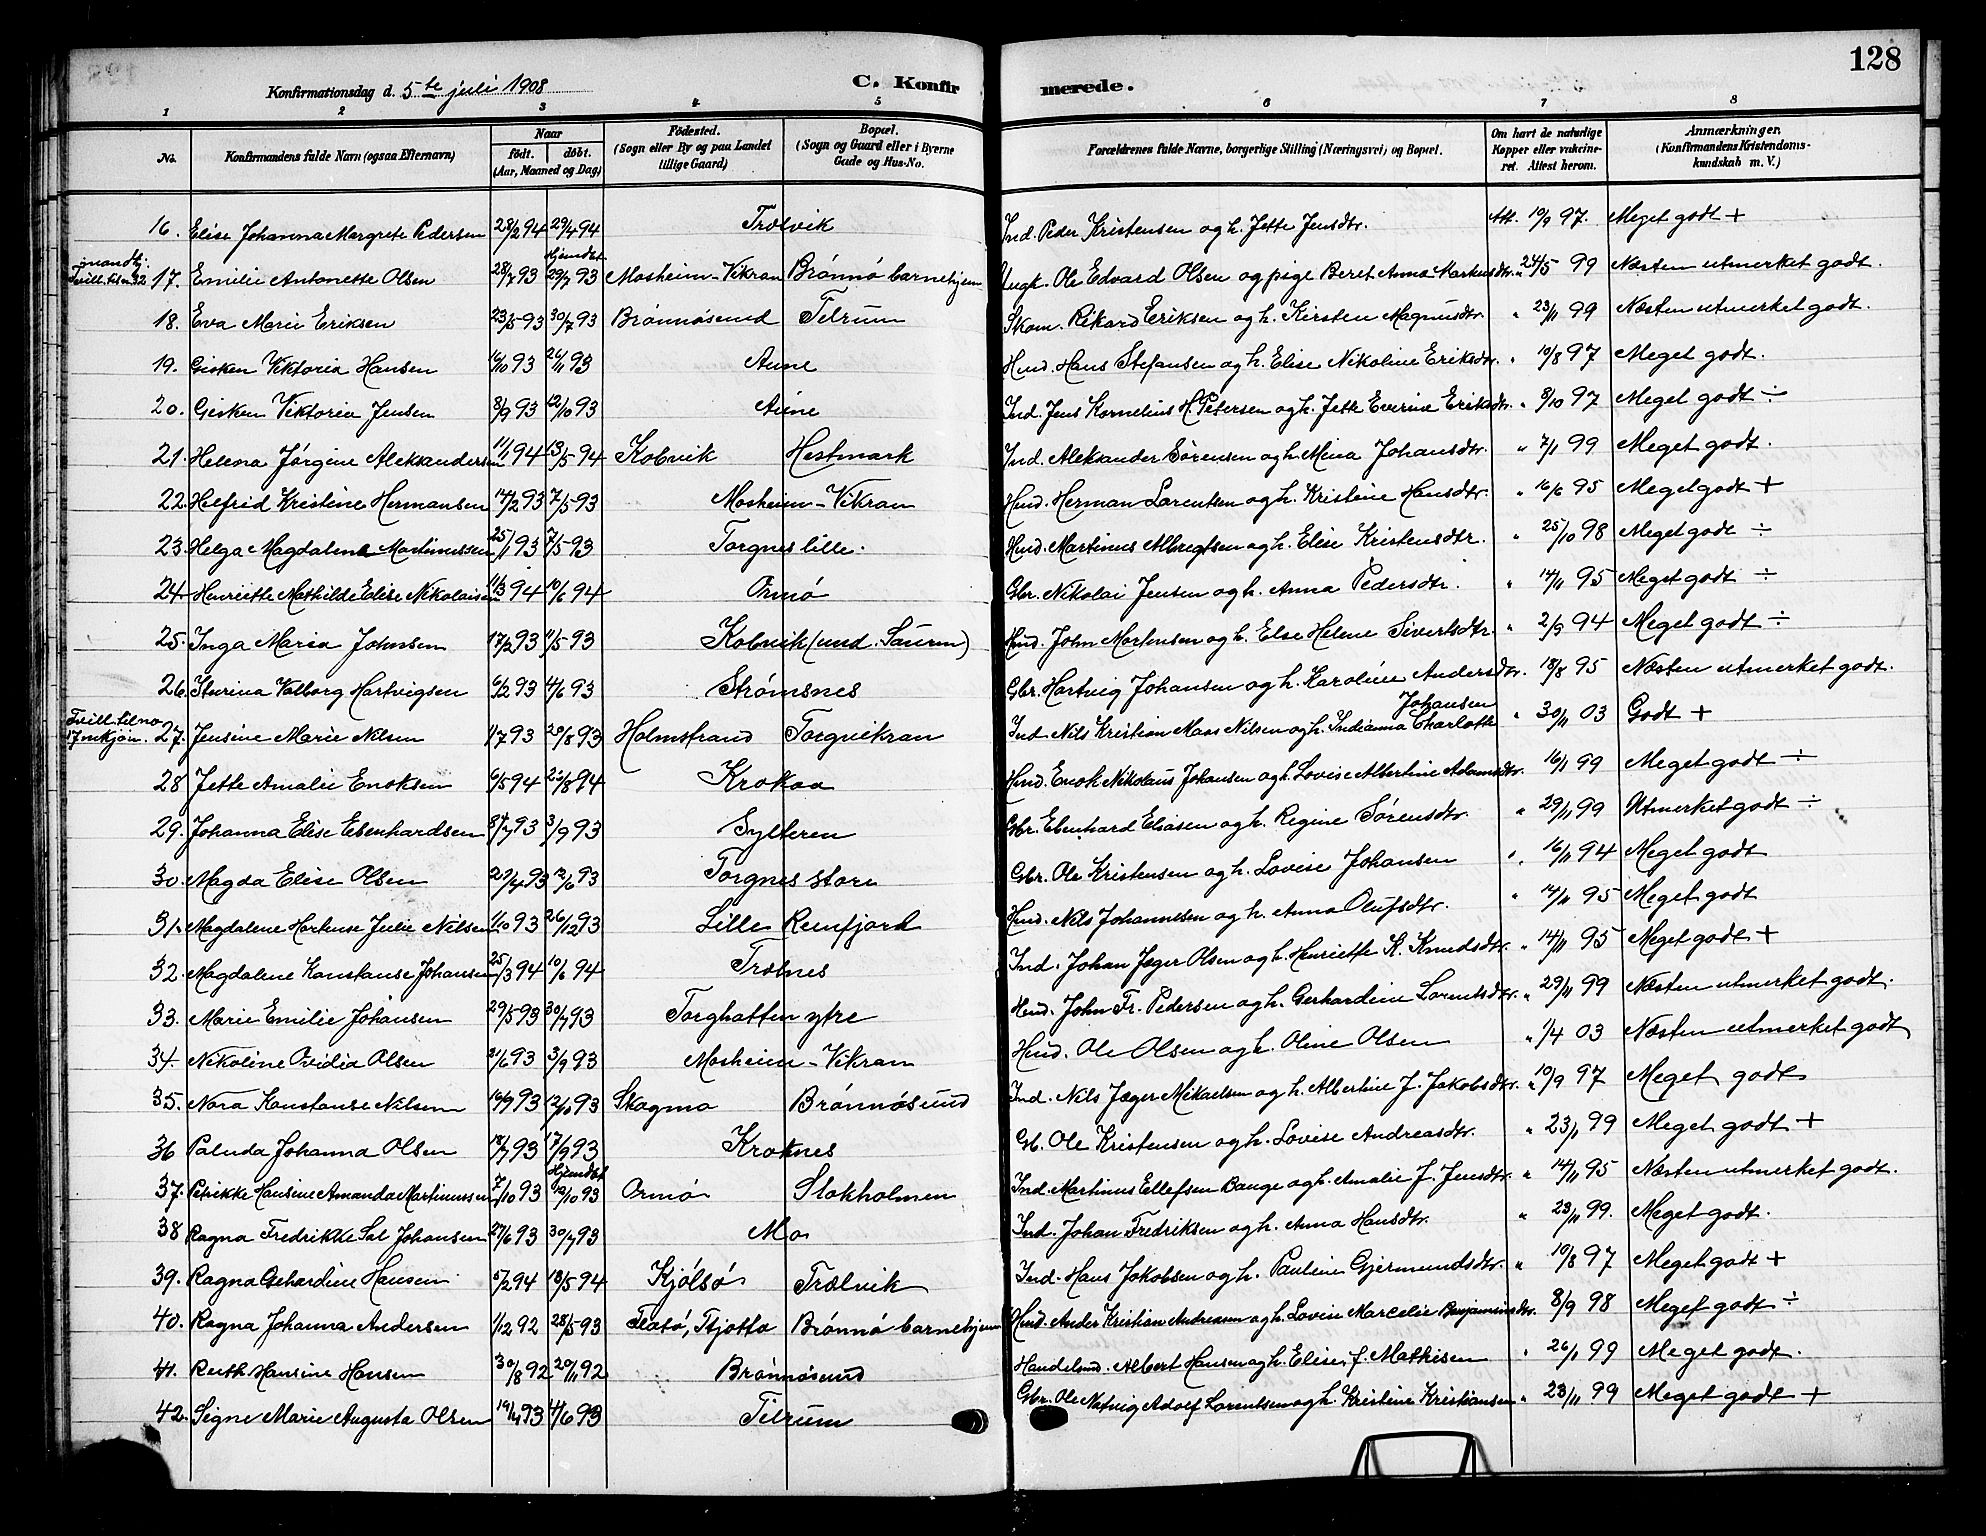 128
Konfirmationsdag d. 5te juli 1908
C. Konfirmerede.
1 2 3 4 5 6 7 8
No. Konfirmandens fulde Navn (ogsaa Efternavn) Naar født. døbt. (Aar, Maaned og Dag) Fødested. (Sogn eller By og paa Landet tillige Gaard) Bopæl. (Sogn og Gaard eller i Byerne Gade og Hus-No.) Forældrenes fulde Navne, borgerlige Stilling (Næringsvei) og Bopæl. Om havt de naturlige Kopper eller vakcineret. Attest herom. Anmærkninger. (Konfirmandens Kristendomskundskab m. V.)
16. Elise Johanna Margrete Pedersen 28/2 94 29/4 94 Trælvik Ind. Peder Kristensen og h. Jette Jensdtr. Att. 10/9 97. Meget godt +
17. Emilie Antonette Olsen 28/7 93 Hjemdøbt 29/7 93 Mosheim-Vikran Brønnø barnehjem Ungk. Ole Edvard Olsen og pige Beret Anna Markusdtr. " 24/5 99 Næsten utmerket godt.
18. Eva Marie Eriksen 23/5 93 30/7 93 Brønnøsund Tilrum Skom. Rikard Eriksen og h. Kirsten Magnusdtr. " 23/11 99 Næsten utmerket godt.
19. Gisken Viktoria Hansen 16/10 93 26/11 93 Aune Hmd. Hans Stefansen og h. Elise Nikoline Eriksdtr. " 10/8 97 Meget godt.
20. Gisken Viktoria Jensen 8/9 93 12/10 93 Aune Ind. Jens Kornelius H. Petersen og h. Jette Everine Eriksdtr. " 8/10 97 Meget godt ÷
21. Helena Jørgine Aleksandersen 11/1 94 13/5 94 Kobvik Hestmark Ind. Aleksander Sørensen og h. Mina Johansdtr. " 7/11 99 Meget godt.
22. Helfrid Kristine Hermansen 14/2 93 7/5 93 Mosheim-Vikran Hmd. Herman Larentsen og h. Kristine Hansdtr. " 16/6 95 Meget godt +
23. Helga Magdalena Martinussen 25/1 93 7/5 93 Torgnes lille. Hmd. Martinus Albregtsen og h. Elise Kristensdtr. " 25/10 98 Meget godt ÷
24. Henriette Mathilde Elise Nikolaisen 11/3 94 10/6 94 Ormø Gbr. Nikolai Jensen og h. Anna Pedersdtr. " 14/11 95 Meget godt ÷
25. Inga Maria Johnsen 17/2 93 11/5 93 Kobvik (und. Saurin) Hmd. John Mortensen og h. Else Helene Sivertsdtr. " 2/9 94 Meget godt ÷
26. Iturina Valborg Hartvigsen 6/2 93 4/6 93 Strømsnes Gbr. Hartvig Johansen og h. Karoline Andersdtr. " 18/8 95 Næsten utmerket godt.
Tvill. til no
27. Jensine Marie Nilsen 1/7 93 20/8 93 Holmstrand Torgvikran Ind. Nils Kristian Maas Nilsen og h. Indianna Charlotte Johansen " 30/11 03 Godt +
28 Jette Amalie Enoksen 6/5 94 26/8 94 Krokaa Hmd. Enok Nikolaus Johansen og h. Lovise Albertine Adamsdtr. " 16/1 99 Meget godt ÷
29. Johanna Elise Ebenhardsen 8/7 93 3/9 93 Sylteren Gbr. Ebenhard Eliasen og h. Regine Sørensdtr. " 29/11 99 Utmerket godt ÷
30. Magda Elise Olsen 29/4 93 12/6 93 Torgnes store Gbr. Ole Kristensen og h. Lovise Johansen " 16/11 94 Meget godt
31. Magdalene Markuse Julie Nilsen 1/10 93 26/12 93 Lille Remfjord Hmd. Nils Johannesen og h. Anna Olufsdtr. " 14/11 95 Meget godt
32. Magdalene Konstanse Johansen 25/3 94 10/6 94 Trælnes Ind. Johan Jæger Olsen og h. Henriette K. Knudsdtr. " 14/11 95 Meget godt +
33. Marie Emilie Johansen 29/5 93 30/7 93 Torghatten ytre Hmd. John Fr. Pedersen og h. Gerhardine Lorentsdtr. " 29/11 99 Næsten utmerket godt.
34. Nikoline Ovidia Olsen 21/6 93 3/9 93 Mosheim-Vikran Hmd. Ole Olsen og h. Oline Olsen " 1/4 03 Næsten utmerket godt
35. Nora Konstanse Nilsen 16/7 93 12/10 93 Skagmo Brønnøsund Ind. Nils Jæger Mikaelsen og h. Albertine J. Jakobsdtr. " 10/9 97 Meget godt
36 Paluda Johanna Olsen 18/7 93 17/9 93 Kroknes Gb. Ole Kristensen og h. Lovise Andreasdtr. " 23/1 99 Meget godt +
37. Petrikke Hansine Amanda Martinussen 7/10 93 Hjemdøbt 10/10 93 Ormø Stokholmen Ind. Martinus Ellefsen Bauge og h. Amalie J. Jensdtr. " 14/11 95 Næsten utmerket godt.
38 Ragna Fredrikke Sal Johansen 27/6 93 30/7 93 Mo Ind. Johan Fredriksen og h. Anna Hansdtr. " 23/11 99. Meget godt.
39. Ragna Gehardine Hansen 5/2 94 13/5 94 Kjølsø Trælvik Ind. Hans Jakobsen og h. Pauline Gjermundsdtr. " 10/8 97 Meget godt +
40. Ragna Johanna Andersen 1/12 92 28/5 93 Flatø, Tjøtta Brønnø barnehjem Hmd. Ander Kristian Andreasen og h. Lovise Marcelie Benjaminsdtr. 8/9 98 Meget godt ÷
41. Ruth Hansine Hansen 30/8 92 20/11 92 Brønnøsund Handelsmd. Albert Hansen og h. Elise, f. Mathisen " 26/1 99 Meget godt.
42. Signe Marie Augusta Olsen 19/4 93 4/6 93 Tilrum Gbr. Ole Natvig Adolf Lorentsen og h. Kristine Kristiansen " 23/11 99 Meget godt +